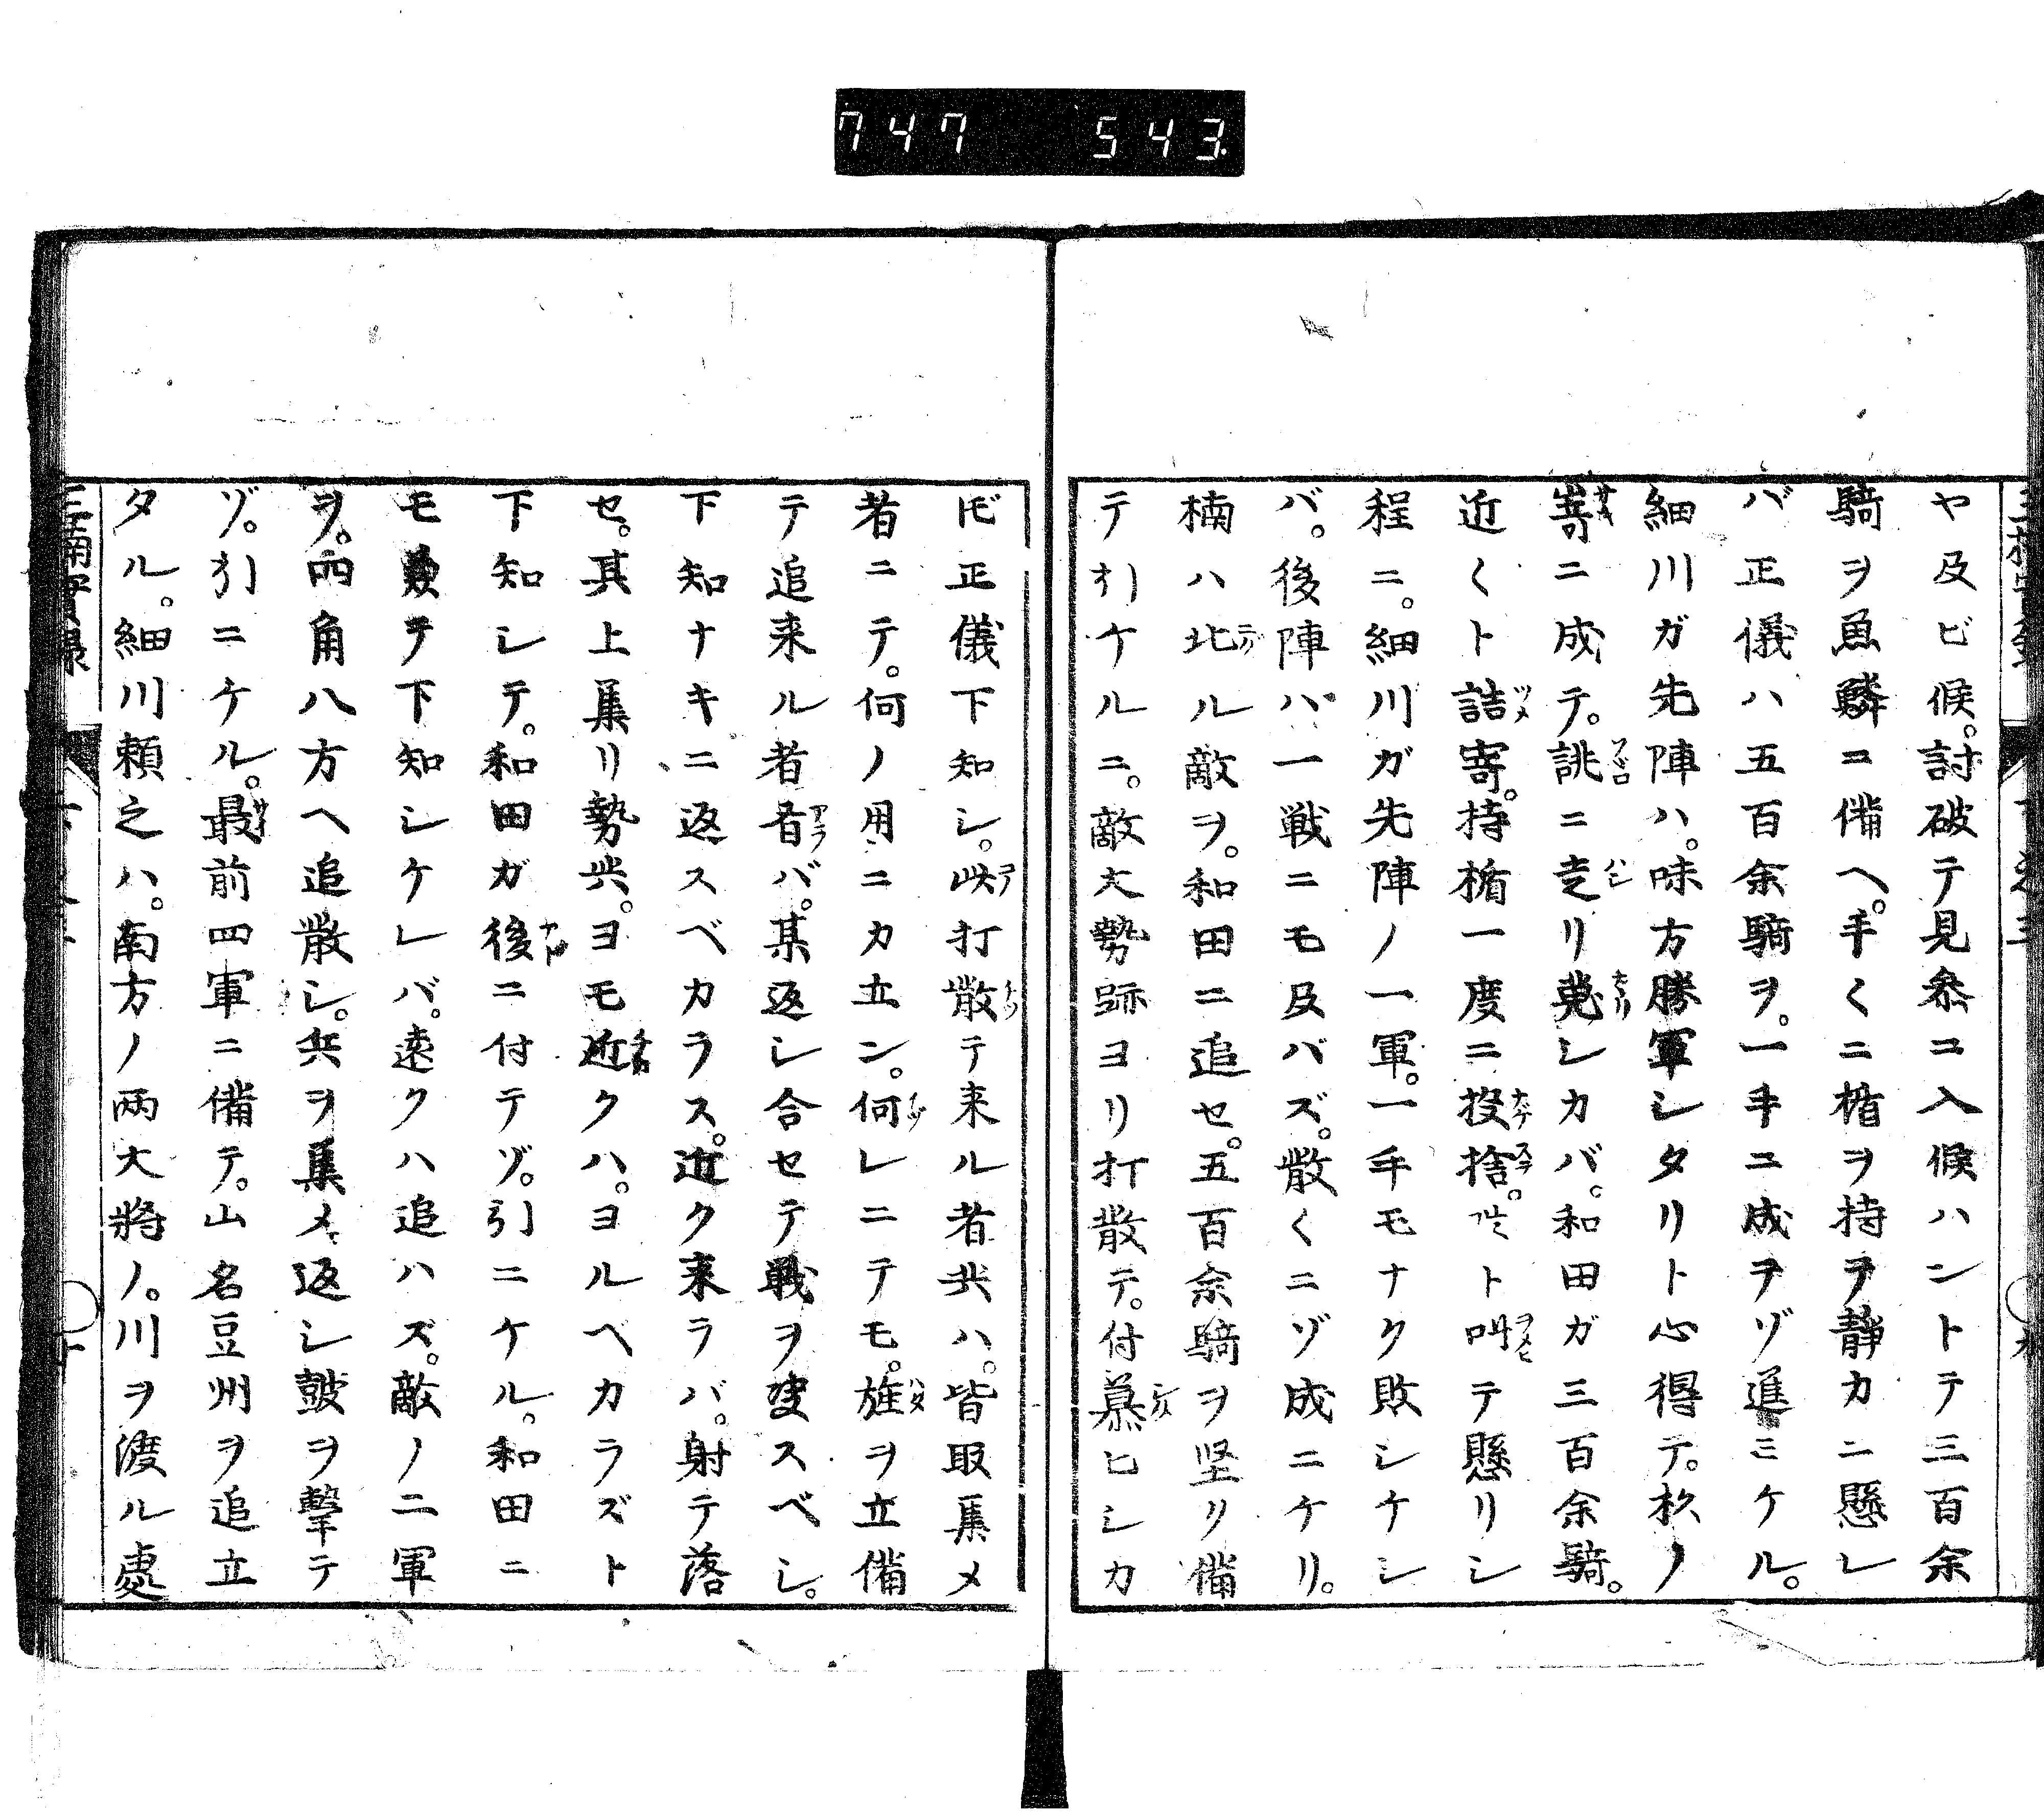 747 543
ヤ及ビ候。討破テ見参ニ入候ハントテ三百余
騎ヲ魚鱗ニ備ヘ。手〱ニ楯ヲ持ヲ静カニ懸レ
バ正儀ハ五百余騎ヲ。一手ニ成ヲゾ進ミケル。
細川ガ先陣ハ。味方勝軍シタリト心得テ。杉ノ
嵜ニ成テ。誂ニ走リ蒐シカバ。和田ガ三百余騎。
近〱ト詰寄。持楯一度ニ投捨。咲ト叫テ懸リシ
程ニ。細川ガ先陣ノ一軍。一手モナク敗シケシ
バ。後陣ハ一戦ニモ及バズ。散〱ニゾ成ニケリ。
楠ハ北ル敵ヲ。和田ニ追セ。五百余騎ヲ堅リ備
テ引ケルニ。敵大勢跡ヨリ打散テ。付慕ヒシカ
𪜈正儀下知シ。此打散テ来ル者共ハ。皆取集メ
者ニテ。何ノ用ニカ立ン。何レニテモ。旌ヲ立備
テ追来ル者有バ。某返シ合セテ戦ヲ決スベシ。
下知ナキニ返スベカラス。近ク来ラバ。射テ落
セ。其上集リ勢共。ヨモ近クハ。ヨルベカラズト
下知シテ。和田ガ後ニ付テゾ。引ニケル。和田ニ
モ數ヲ下知シケレバ。遠クハ追ハズ。敵ノ二軍
ヲ。四角八方ヘ追散シ。兵ヲ集メ返シ皷ヲ撃テ
ゾ。引ニケル。最前四軍ニ備テ。山名豆州ヲ追立
タル。細川頼之ハ。南方ノ両大将ノ。川ヲ渡ル處